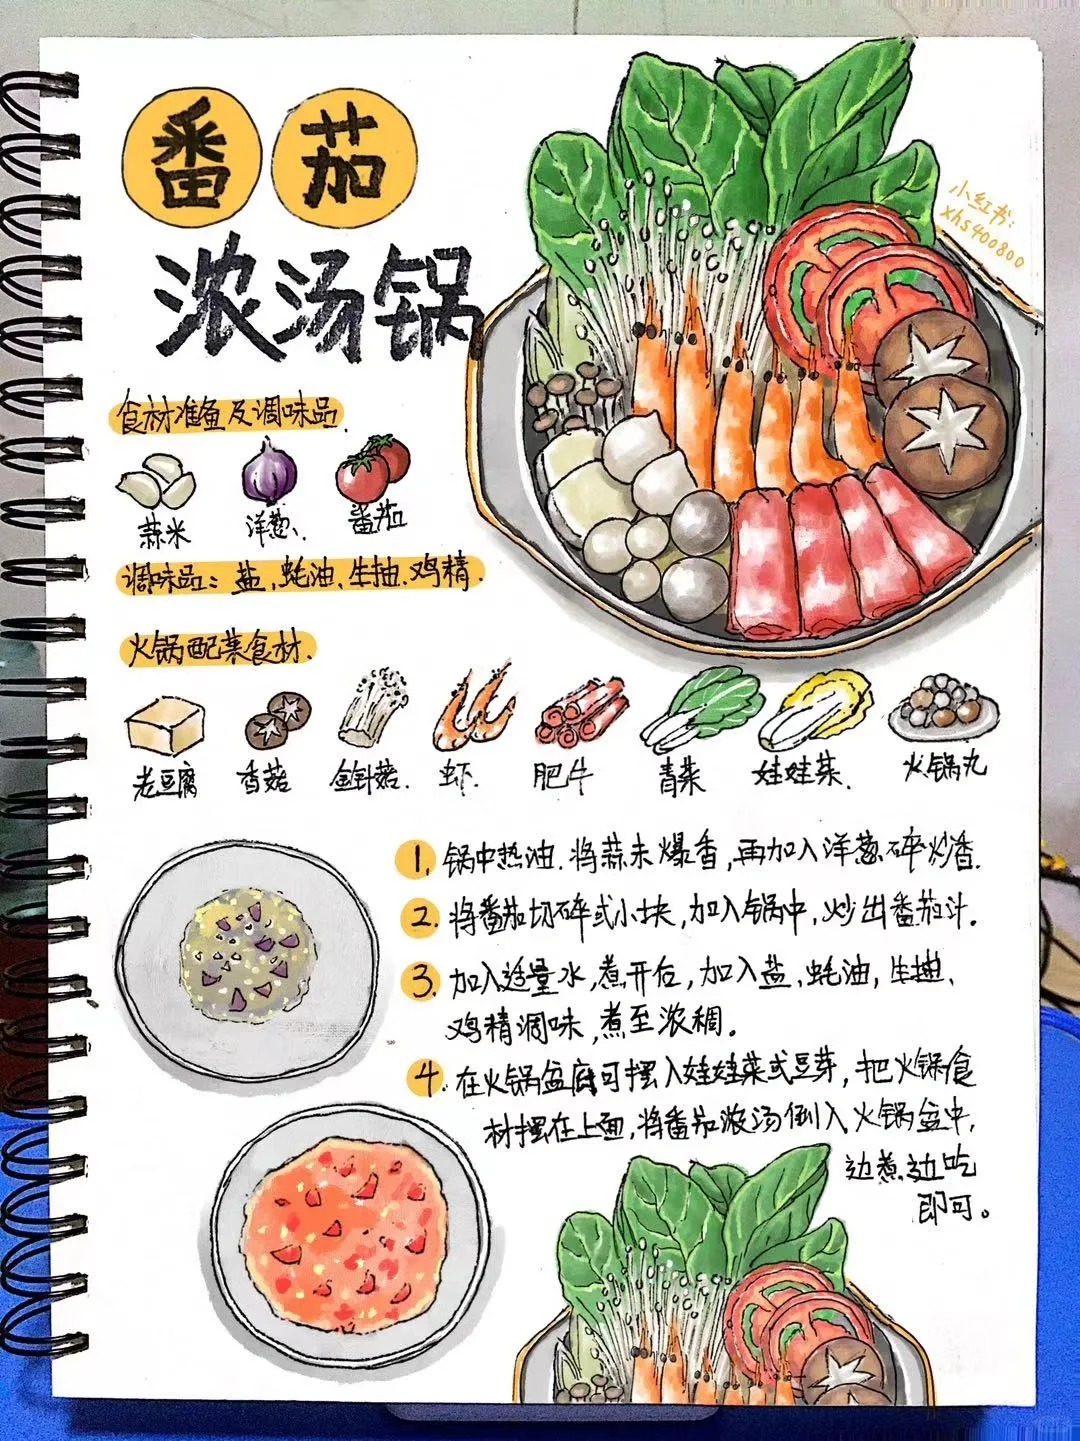 番茄
浓汤锅
小红书:
xhs400800
食材准备及调味品
蒜米 洋葱、 番茄
调味品：盐、蚝油、生抽、鸡精.
火锅配菜食材.
老豆腐 香菇 金针菇. 虾. 肥牛 青菜 娃娃菜. 火锅丸
1. 锅中热油.将蒜未爆香,再加入洋葱碎炒香.
2. 将番茄切碎或小块,加入锅中,炒出番茄汁.
3. 加入适量水,煮开后,加入盐、蚝油,生抽、
鸡精调味,煮至浓稠。
4. 在火锅盆底可摆入娃娃菜或豆芽,把火锅食
材摆在上面,将番茄浓汤倒入火锅盆中,
边煮边吃
即可。